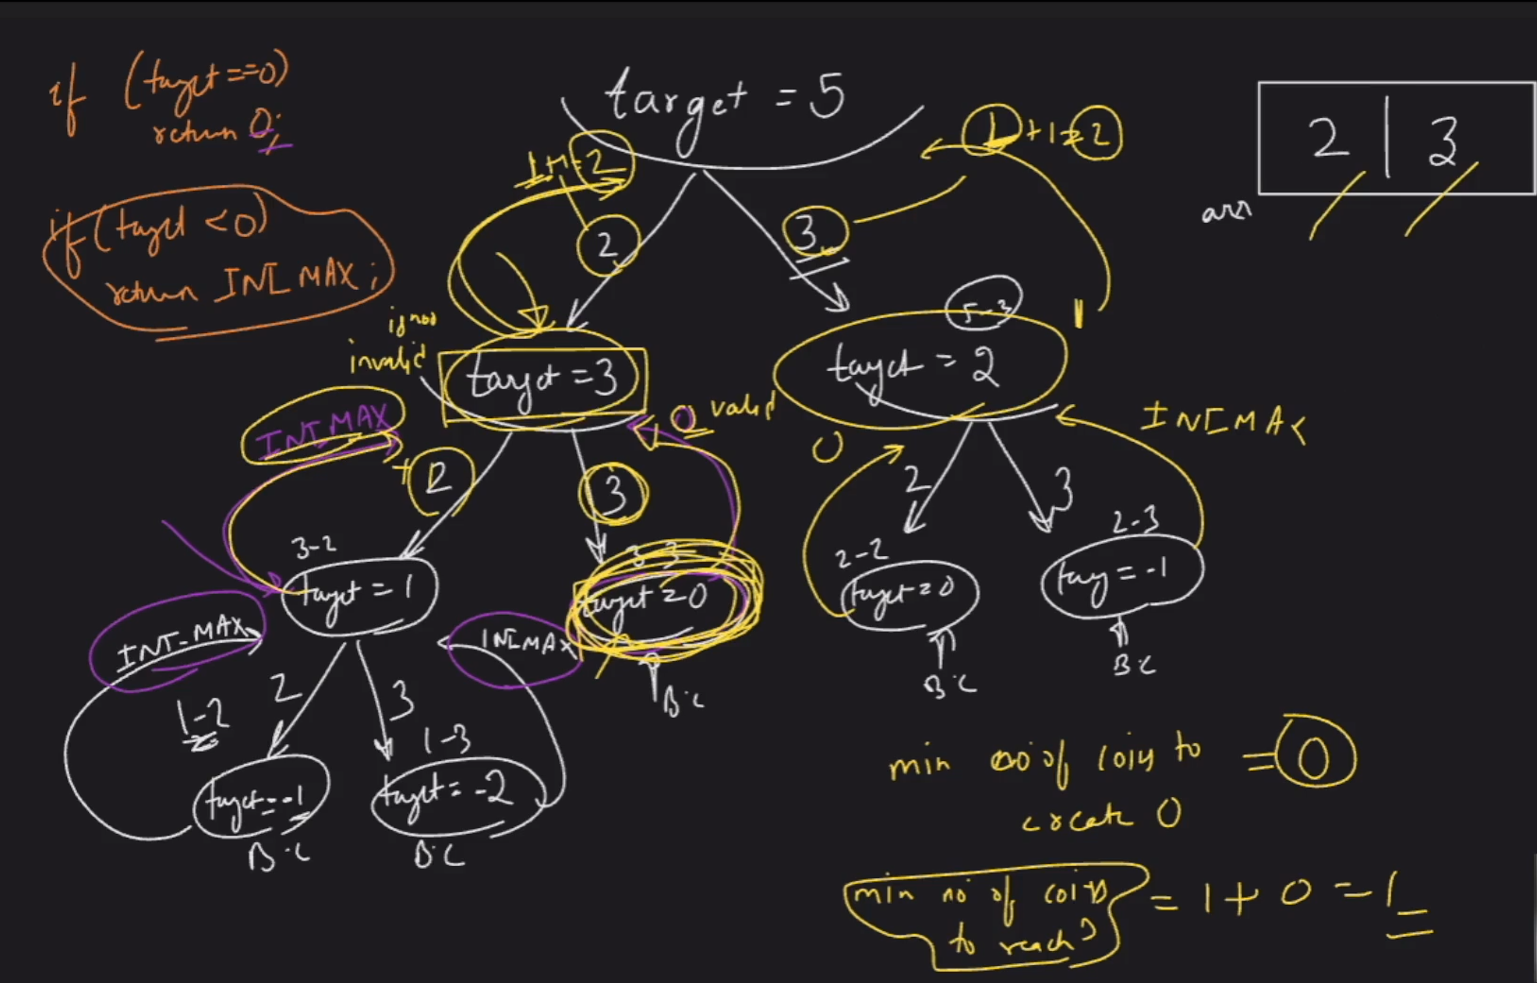 if (target==0)
return 0;
if (target <0)
return INT_MAX;
target = 5
1+1=2
1+1=2
2 | 3
arr
2
3
5-3
1
invalid
target = 3
target = 2
INT_MAX
0 valid
0
INT MAX
2
3
2
3
3-2
3-3
2-2
2-3
target = 1
target = 0
target = 0
targ = -1
INT-MAX
INT MAX
B.C
B.C
B.C
1-2
2
3
1-3
target = -1
target = -2
B.C
B.C
min no of coins to = 0
create 0
min no of coins = 1 + 0 = 1
to reach 3